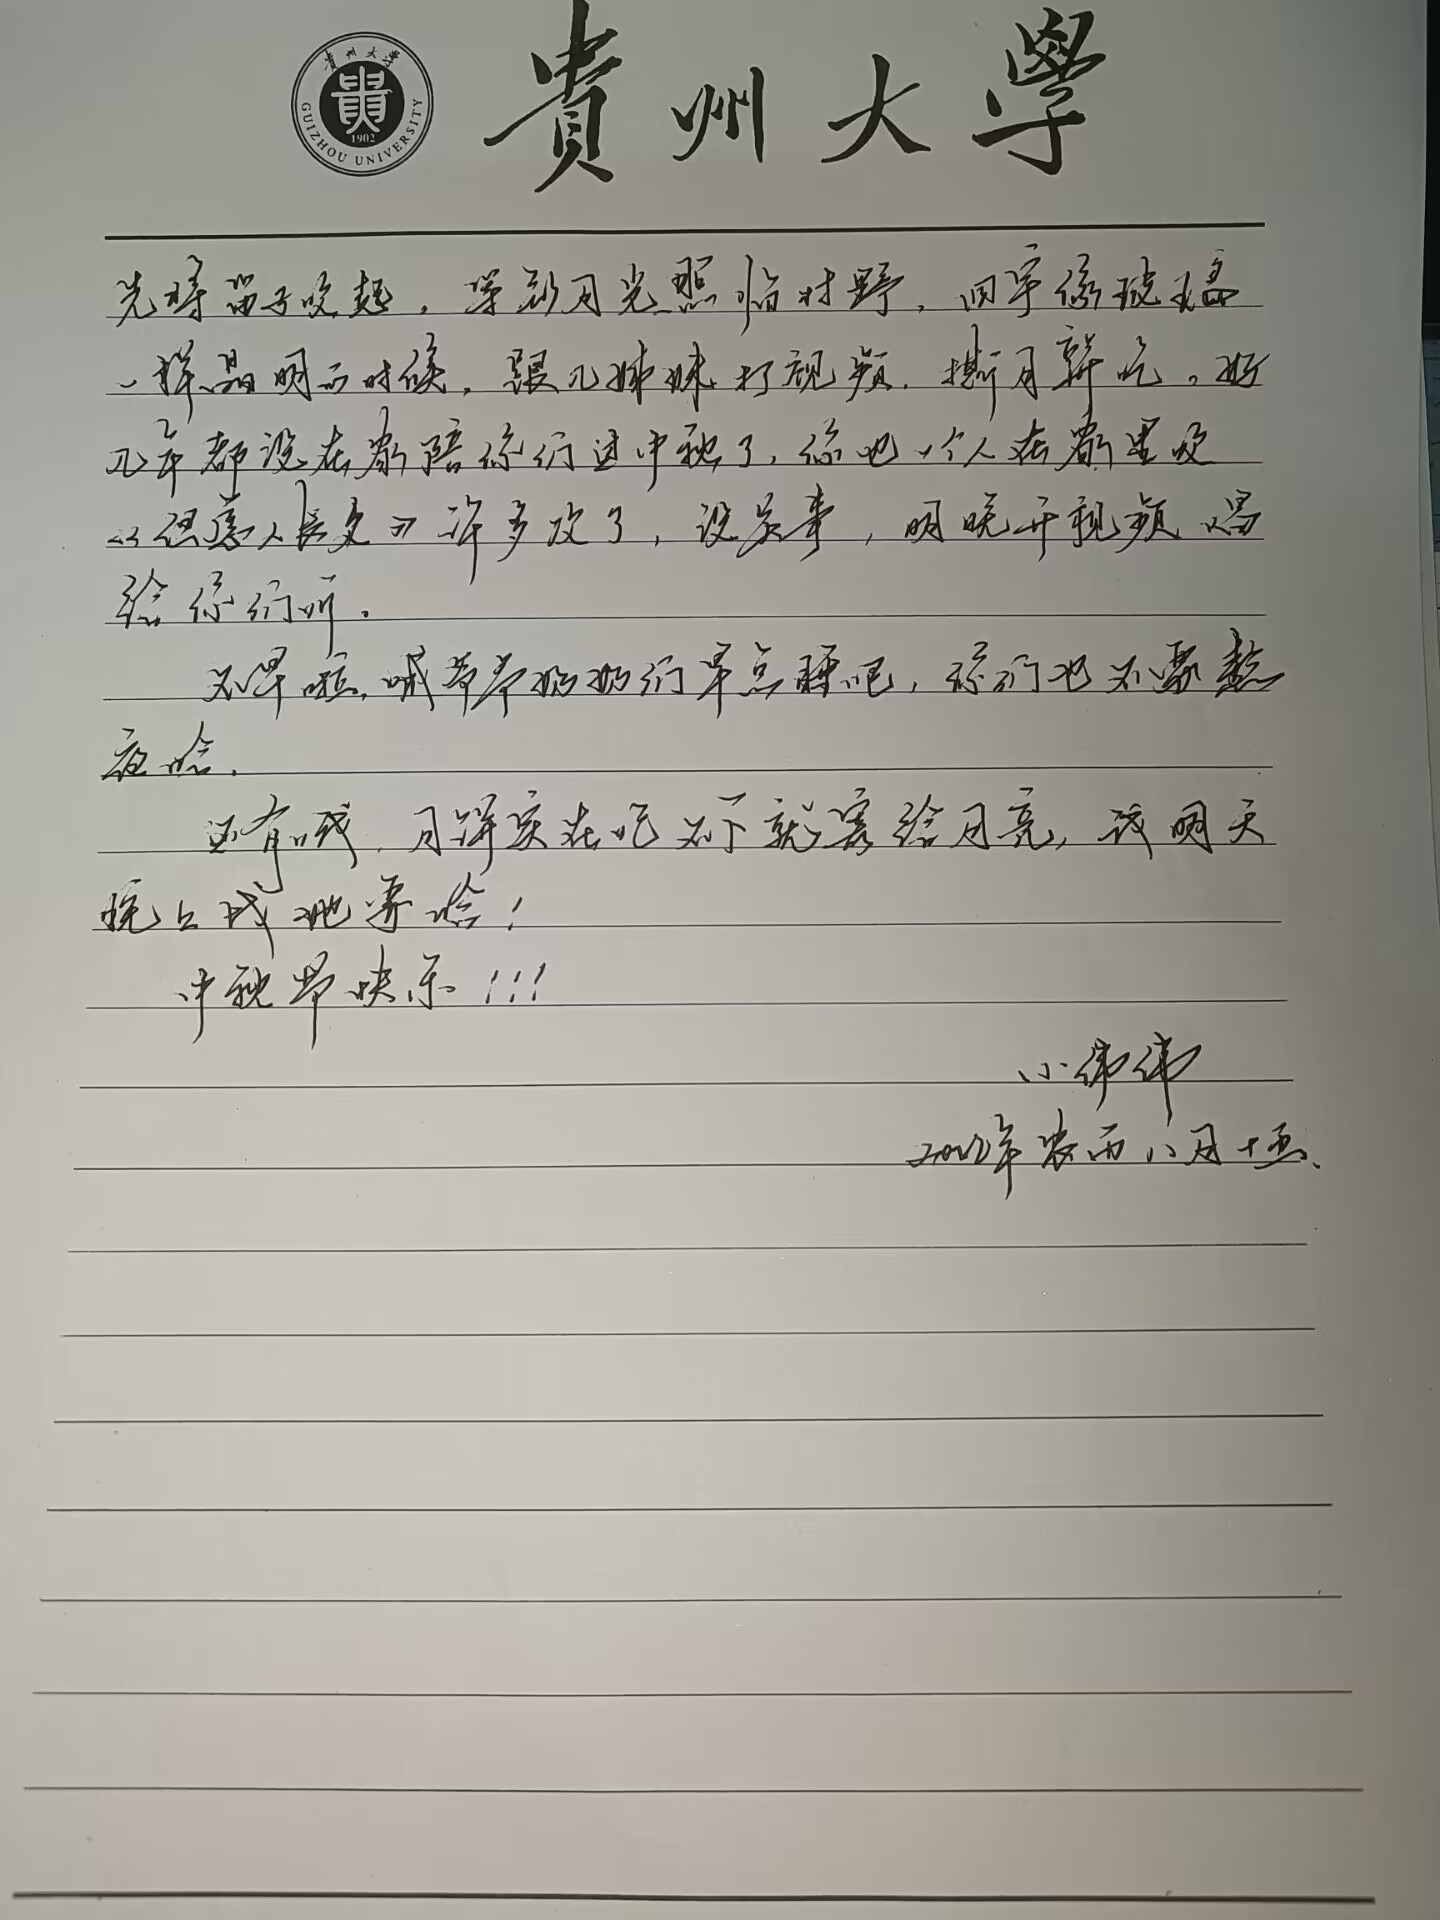 貴州大學
貴州大學
貴
1902
GUIZHOU UNIVERSITY
先将笛子收起，等到月光照临村野，四宇像玻璃
一样晶明的时候，跟几姊妹打视频，撕月饼吃。好
几年都没在家陪你们过中秋了，你也一个人在家里
《但愿人长久》许多次了，没关事，明晚开视频唱
给你们听。
不早啦，喊爷爷奶奶们早点睡吧，你们也不要熬
夜哈。
还有哦，月饼实在吃不下就寄给月亮，试明天
晚上成地零哈！
中秋节快乐！！！
小伟伟
2022年农历八月十五、